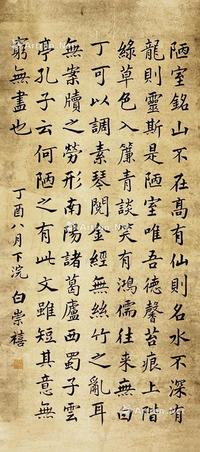 陋室銘山不在高有仙則名水不深有
龍則靈斯是陋室唯吾德馨苔痕上階
綠草色入簾青談笑有鴻儒往來無白
丁可以調素琴閱金經無絲竹之亂耳
無案牘之勞形南陽諸葛廬西蜀子雲
亭孔子云何陋之有此文雖短其意無
窮無盡也
丁酉八月下浣白崇禧